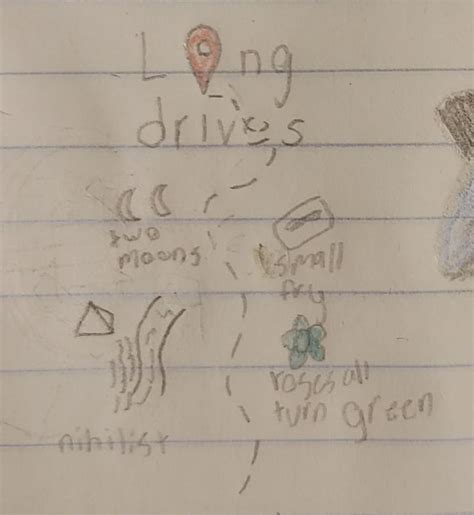 Long
drives
two
moons
small
fry
roses all
turn green
nihilist